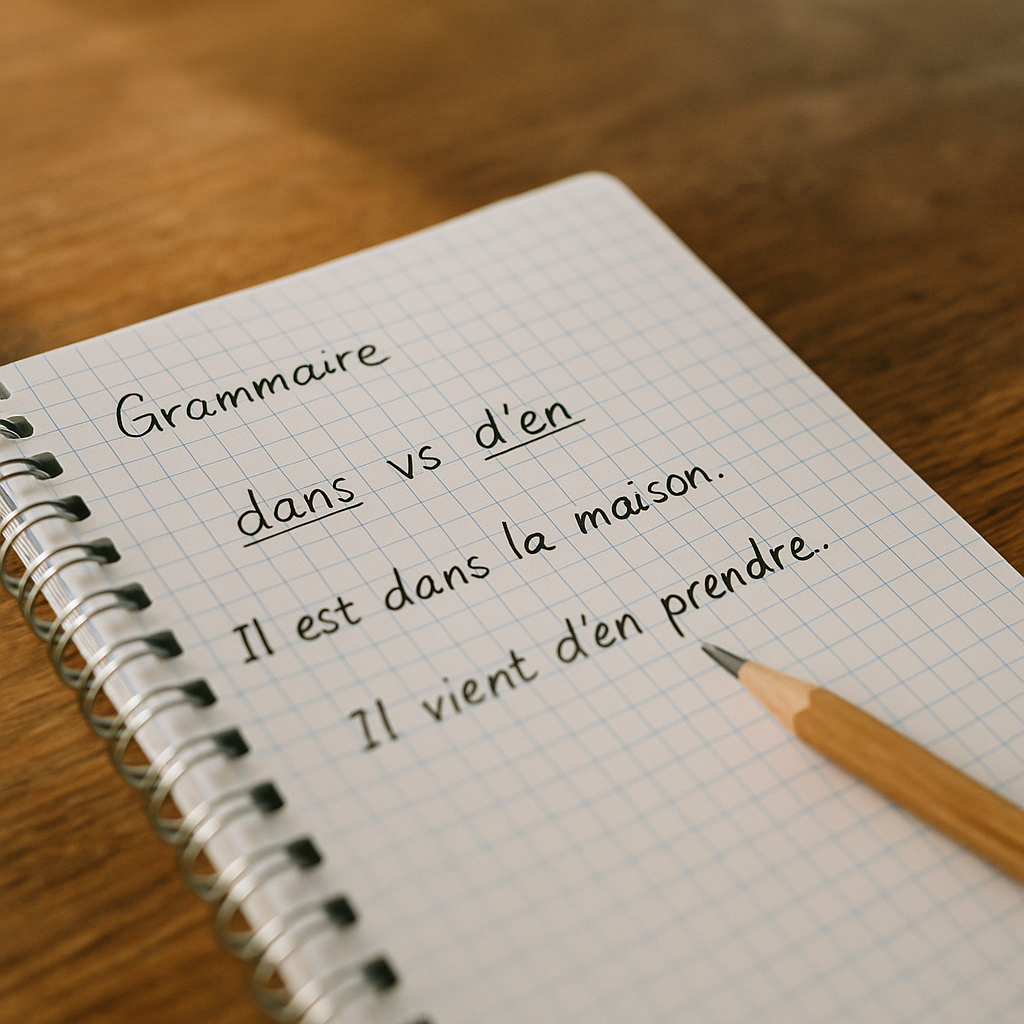 Grammaire
dans vs d'en
Il est dans la maison.
Il vient d'en prendre..